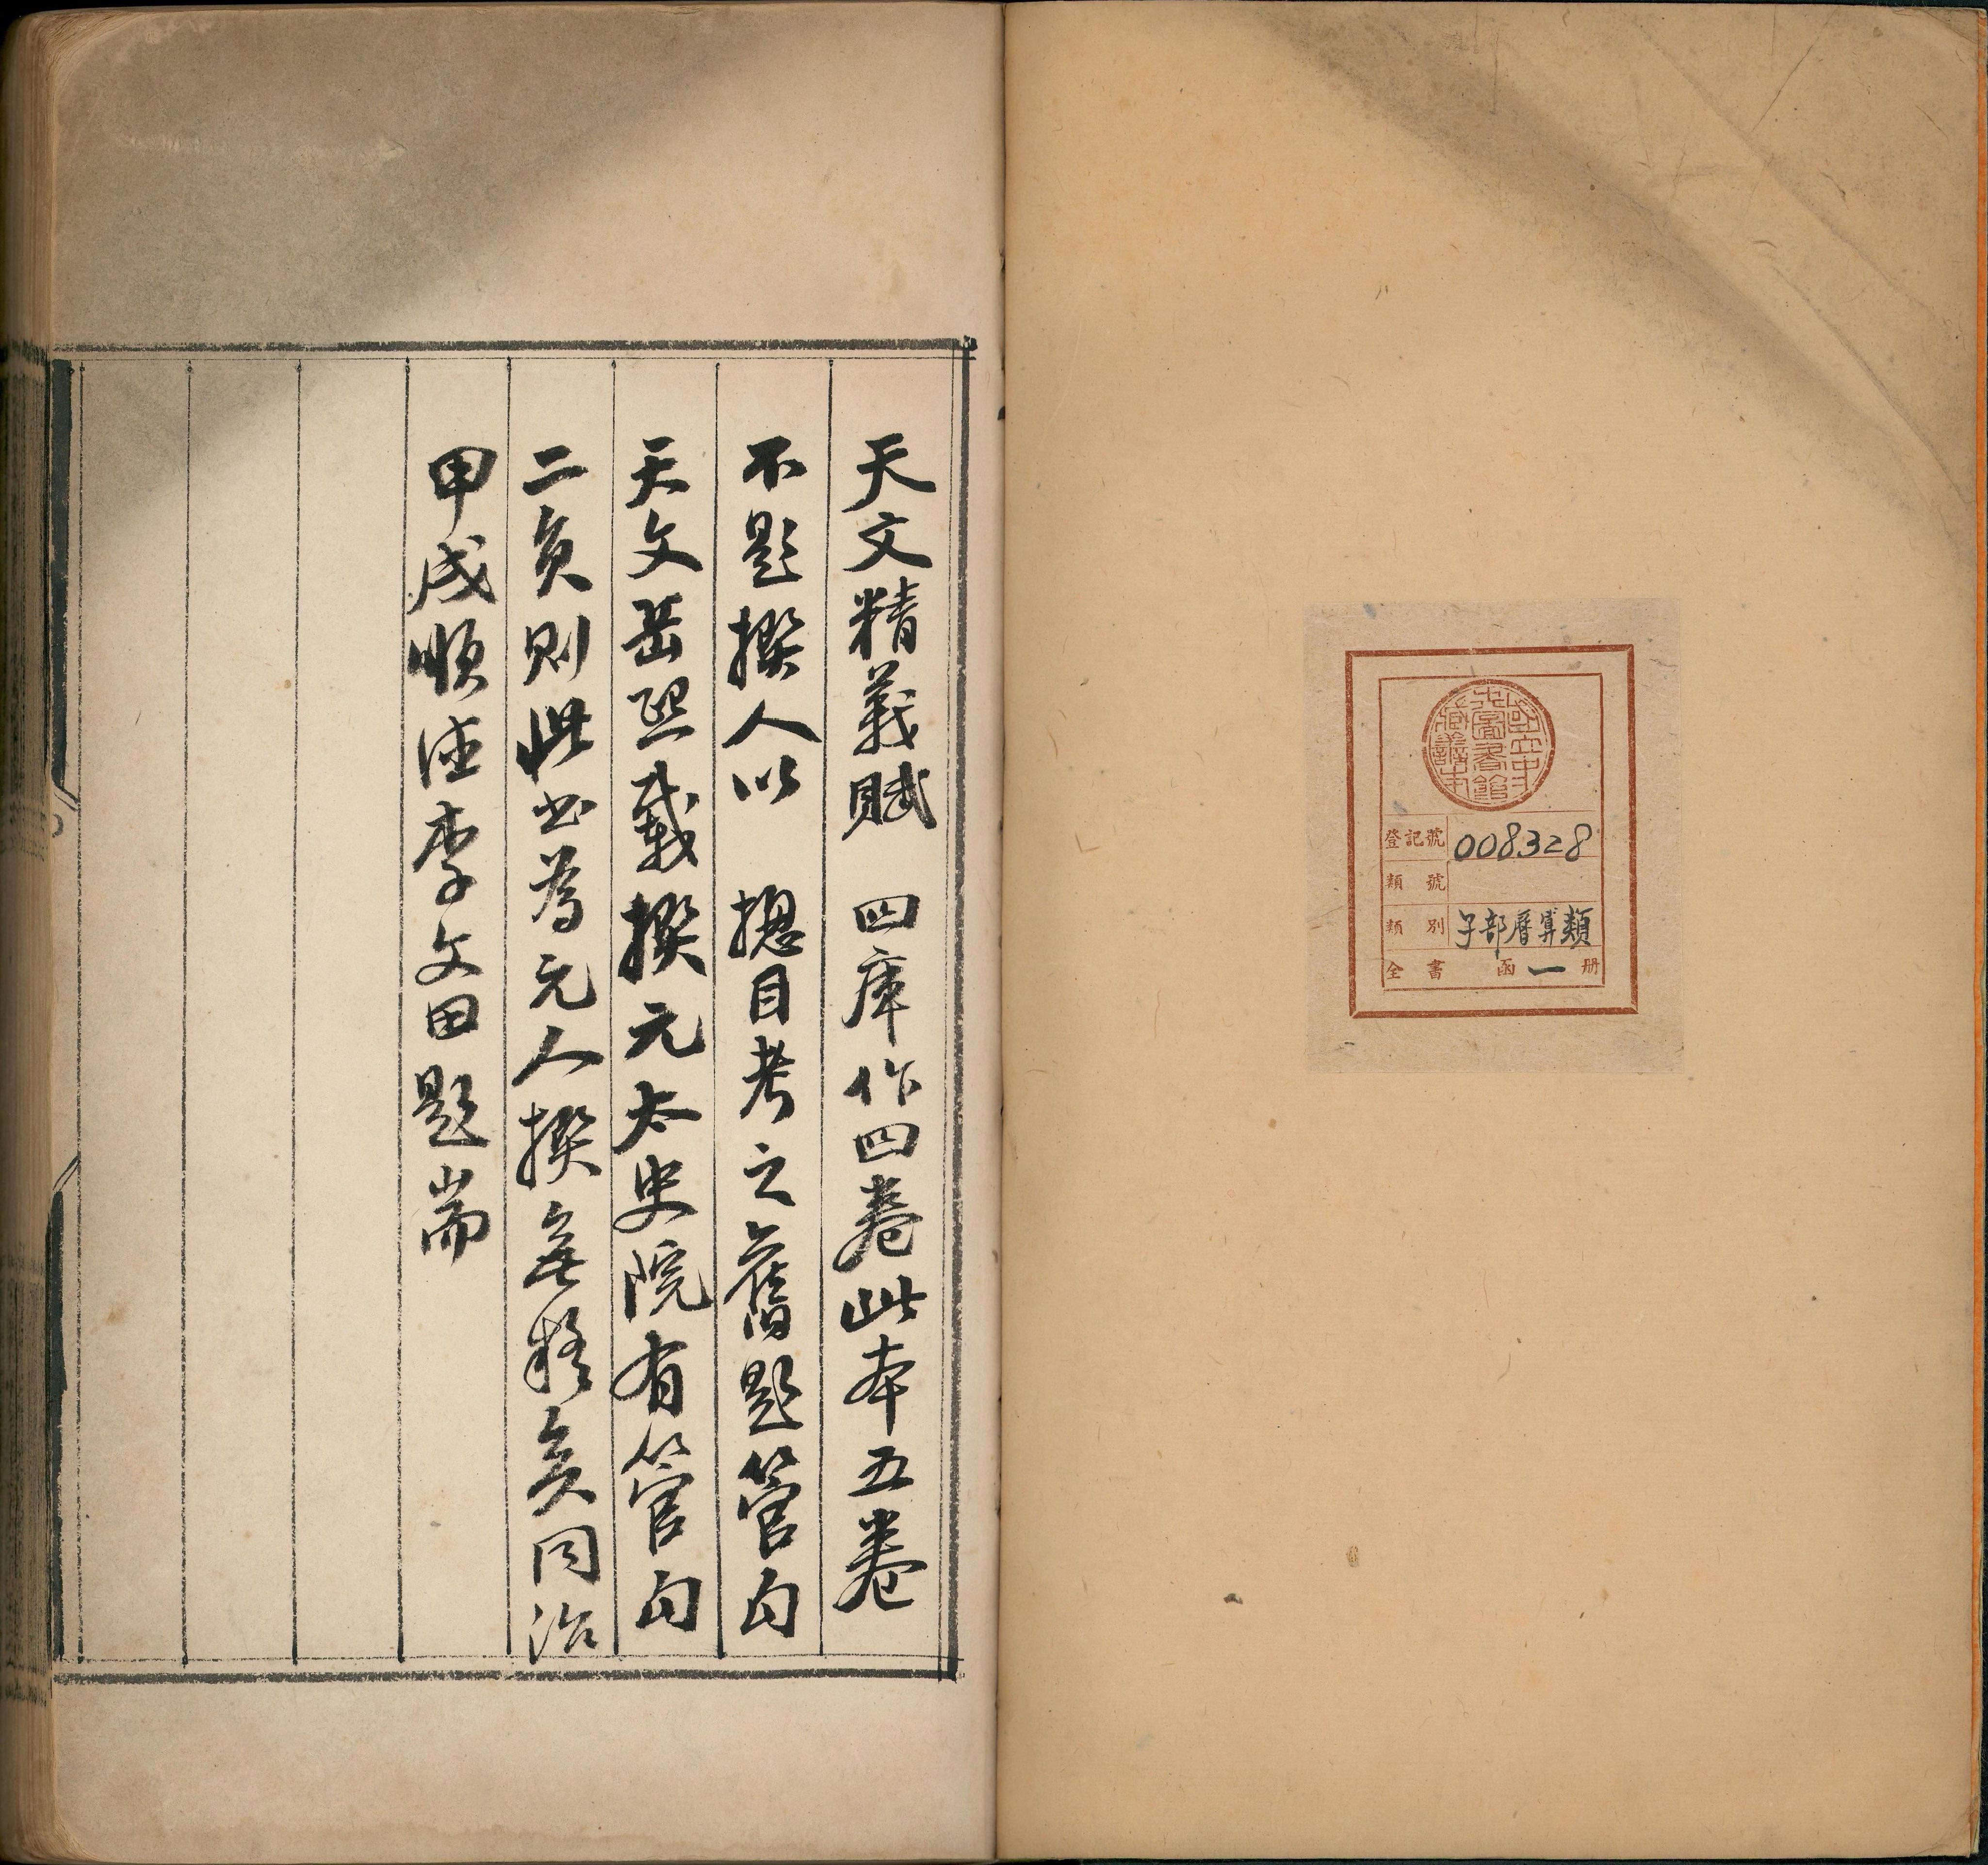 國立中
央圖書館
藏善本
登記號 008328
類號
類別 子部曆算類
全書 函 一 册
天文精義賦 四庫作四卷此本五卷
不題撰人以 揔目考之舊題管勾
天文岳熙載撰元太史院有管勾
二員則此書爲元人撰無疑矣同治
甲戌順德李文田題耑